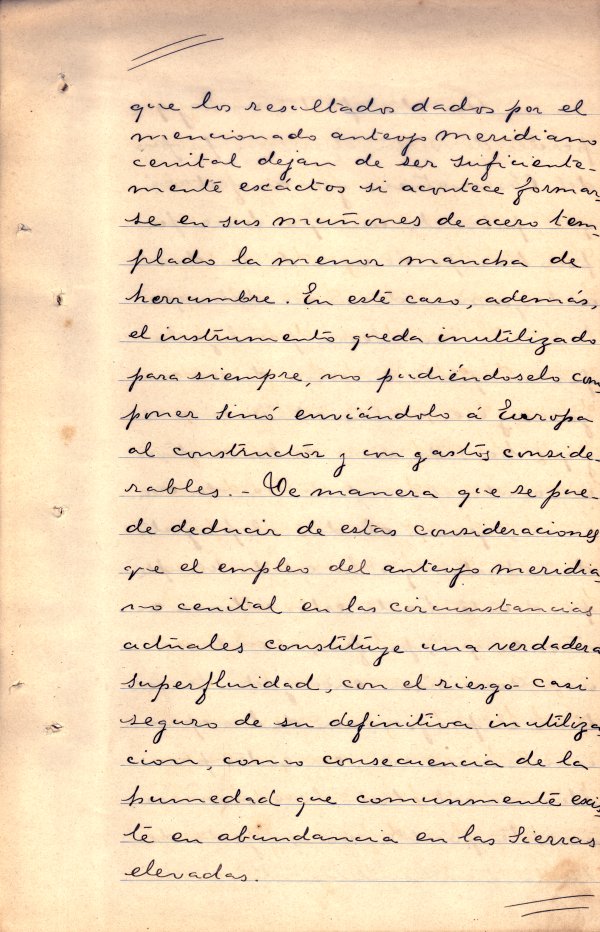 que los resultados dados por el
mencionado anteojo meridiano
cenital dejan de ser suficiente-
mente exáctos si acontece formar-
se en sus muñones de acero tem-
plado la menor mancha de
herrumbre. En este caso, además,
el instrumento queda inutilizado
para siempre, no pudiéndoselo com-
poner sinó enviándolo á Europa
al constructor y con gastos conside-
rables. - De manera que se pue-
de deducir de estas consideraciones
que el empleo del anteojo meridia-
no cenital en las circunstancias
actuales constituye una verdadera
superfluidad, con el riesgo casi
seguro de su definitiva inutiliza-
cion, como consecuencia de la
humedad que comunmente exis-
te en abundancia en las sierras
elevadas.